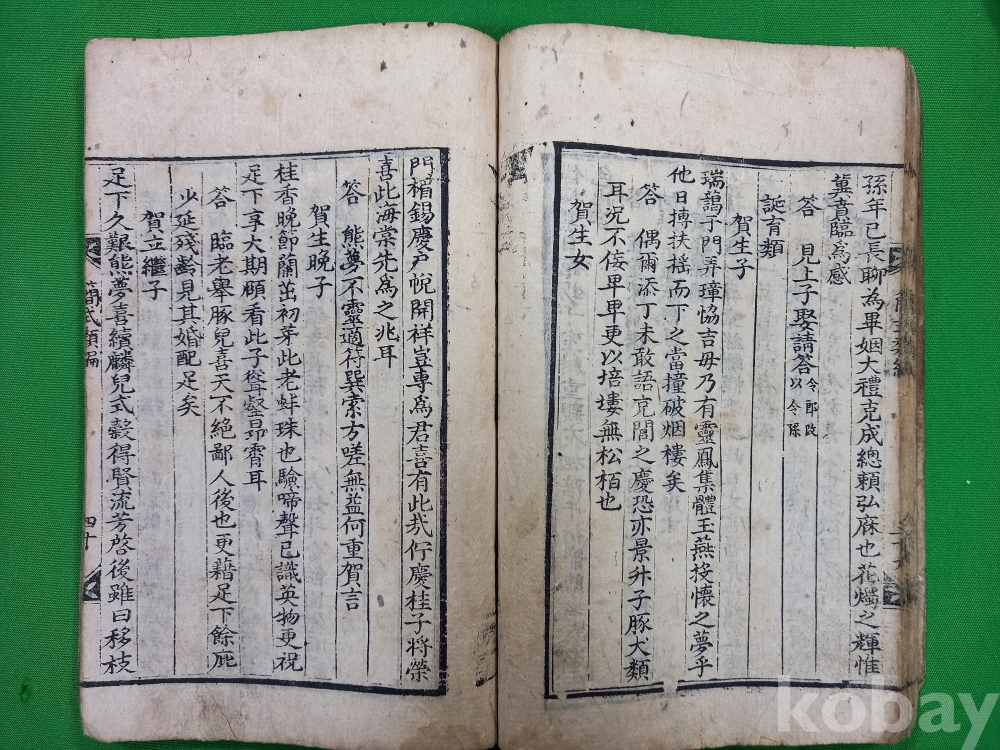 孫年已長聊為畢姻大禮克成總賴弘庥也花燭之輝惟
冀賁臨為感
答 見上子娶請答 令郎改以令孫
誕育類
賀生子
瑞藹于門弄璋協吉毋乃有靈鳳集體玉燕投懷之夢乎
他日摶扶搖而下之當撞破烟樓矣
答 偶爾添丁未敢語充閭之慶恐亦景升子豚犬類
耳况不侫卑卑更以培塿無松栢也
賀生女
門楣錫慶戶帨開祥豈專為君喜有此㢤佇慶桂子將榮
喜此海棠先為之兆耳
答 熊夢不靈適符巽索方嗟無益何重賀言
賀生晚子
桂香晚節蘭茁初芽此老蚌珠也驗啼聲已識英物更祝
足下享大期頤看此子聳壑昂霄耳
答 臨老舉豚兒喜天不絕鄙人後也更藉足下餘庇
少延殘齡見其婚配足矣
賀立繼子
足下久艱熊夢喜續麟兒式穀得賢流芳啓後雖曰移枝
簡式類編
四十
kobay